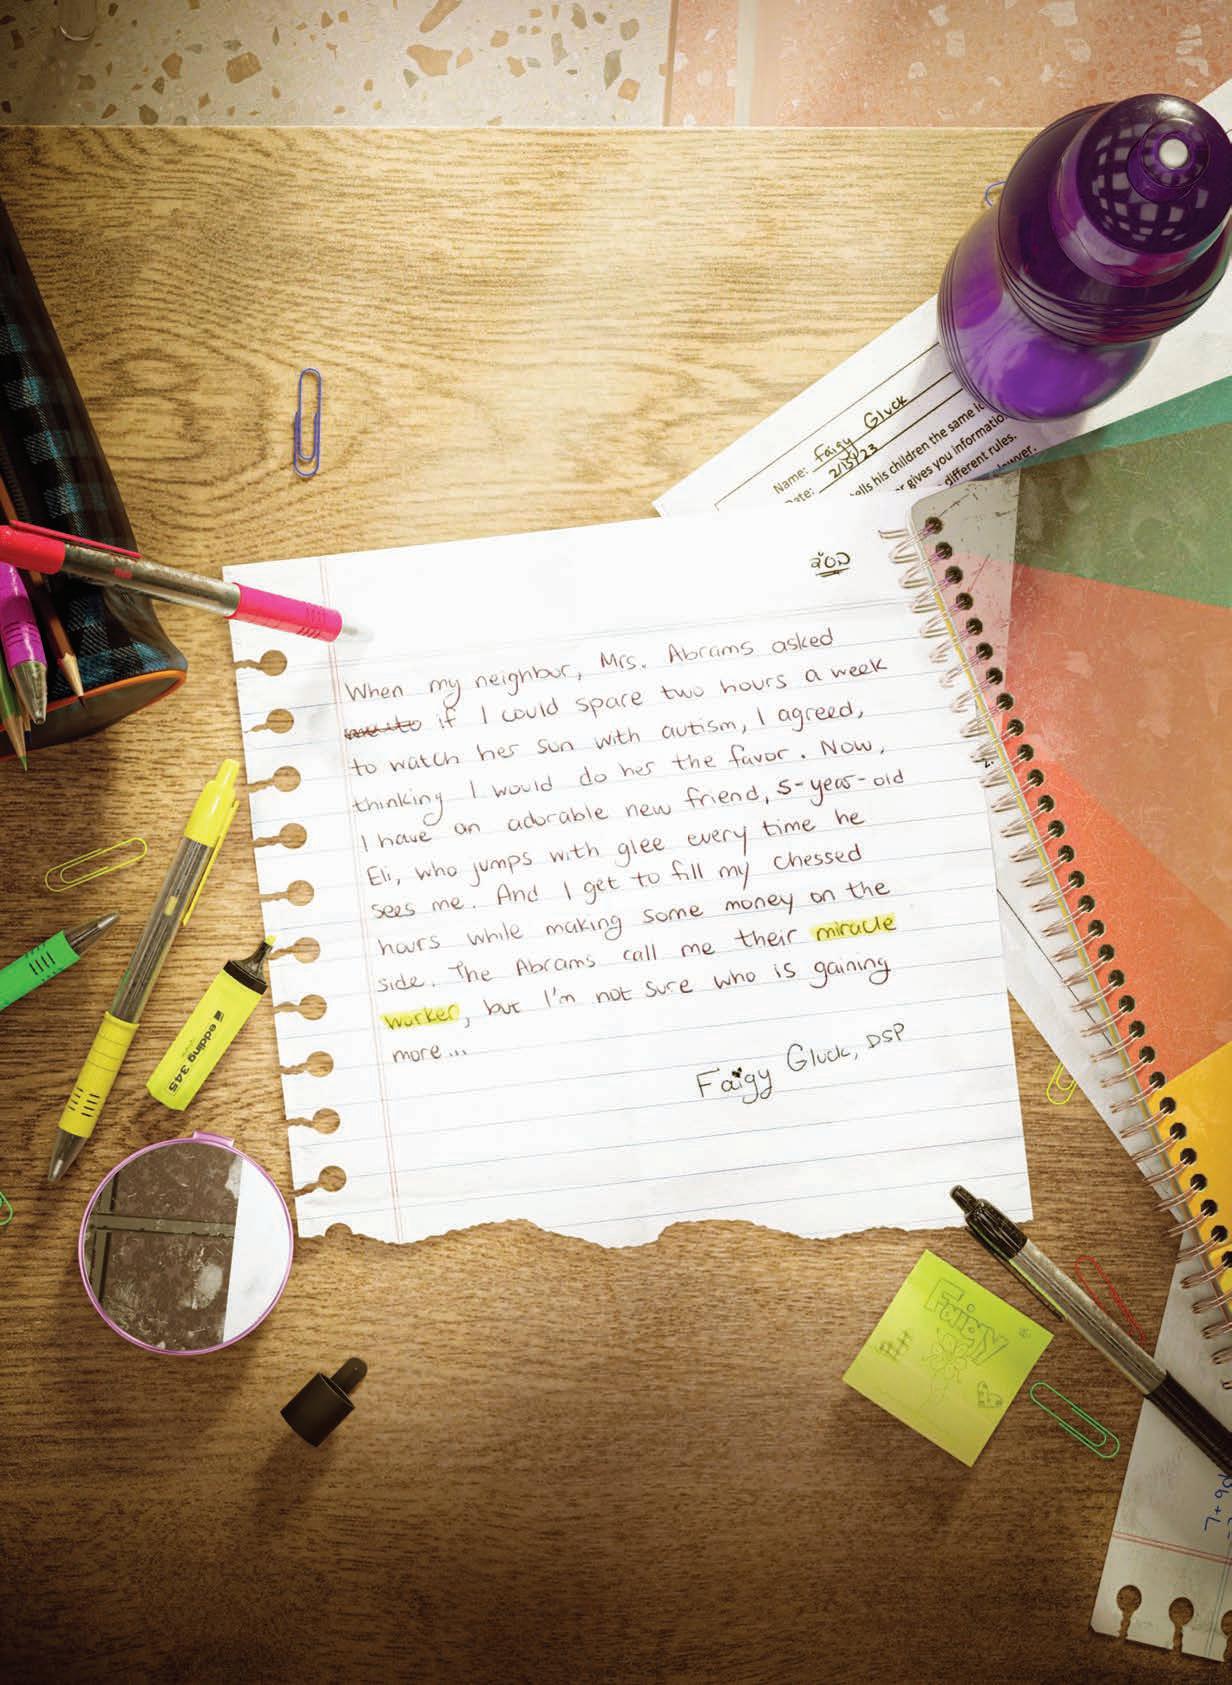 Name: Faigy Gluck
Date: 2/15/23
ells his children the same
r gives you informatio
different rules.
lawyer.
בס"ד
When my neighbor, Mrs. Abrams asked
if I could spare two hours a week
to watch her son with autism, I agreed,
thinking I would do her the favor. Now,
I have an adorable new friend, 5-year-old
Eli, who jumps with glee every time he
sees me. And I get to fill my chessed
hours while making some money on the
side. The Abrams call me their miracle
worker, but I'm not sure who is gaining
more...
Faigy Gluck, DSP
edding 345
Faigy